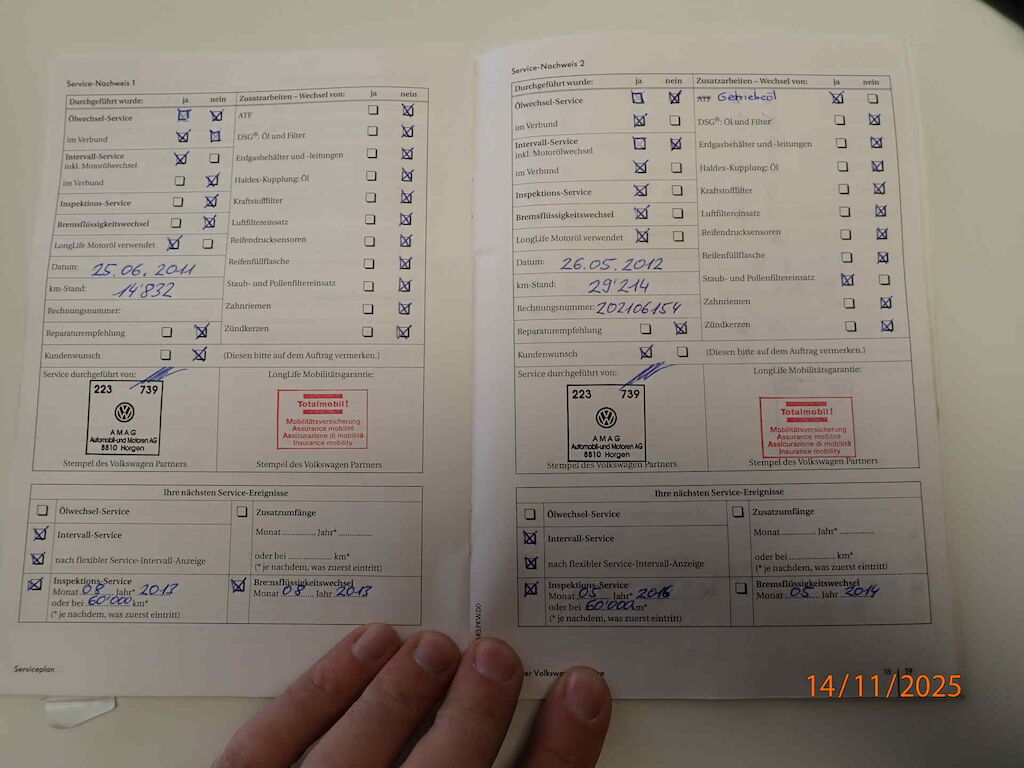 Service-Nachweis 1
Durchgeführt wurde: ja nein Zusatzarbeiten – Wechsel von: ja nein
Ölwechsel-Service ATF
im Verbund DSG®: Öl und Filter
Intervall-Service Erdgasbehälter und -leitungen
inkl. Motorölwechsel
im Verbund Haldex-Kupplung: Öl
Inspektions-Service Kraftstofffilter
Bremsflüssigkeitswechsel Luftfiltereinsatz
LongLife Motoröl verwendet Reifendrucksensoren
Datum: 25.06.2011 Reifenfüllflasche
km-Stand: 14'832 Staub- und Pollenfiltereinsatz
Rechnungsnummer: Zahnriemen
Reparaturempfehlung Zündkerzen
Kundenwunsch (Diesen bitte auf dem Auftrag vermerken.)
Service durchgeführt von: LongLife Mobilitätsgarantie:
223 739
AMAG
Automobil-und Motoren AG
8810 Horgen
Totalmobil!
Mobilitätsversicherung
Assurance mobilité
Assicurazione di mobilità
Insurance mobility
Stempel des Volkswagen Partners Stempel des Volkswagen Partners
Ihre nächsten Service-Ereignisse
Ölwechsel-Service Zusatzumfänge
Intervall-Service Monat .............. Jahr* ..............
nach flexibler Service-Intervall-Anzeige oder bei .................. km*
(* je nachdem, was zuerst eintritt)
Inspektions-Service Bremsflüssigkeitswechsel
Monat 08 Jahr* 2013 Monat 08 Jahr 2013
oder bei 60'000 km*
(* je nachdem, was zuerst eintritt)
Serviceplan
Service-Nachweis 2
Durchgeführt wurde: ja nein Zusatzarbeiten – Wechsel von: ja nein
Ölwechsel-Service ATF Getriebeöl
im Verbund DSG®: Öl und Filter
Intervall-Service Erdgasbehälter und -leitungen
inkl. Motorölwechsel
im Verbund Haldex-Kupplung: Öl
Inspektions-Service Kraftstofffilter
Bremsflüssigkeitswechsel Luftfiltereinsatz
LongLife Motoröl verwendet Reifendrucksensoren
Datum: 26.05.2012 Reifenfüllflasche
km-Stand: 29'214 Staub- und Pollenfiltereinsatz
Rechnungsnummer: 202106154 Zahnriemen
Reparaturempfehlung Zündkerzen
Kundenwunsch (Diesen bitte auf dem Auftrag vermerken.)
Service durchgeführt von: LongLife Mobilitätsgarantie:
223 739
AMAG
Automobil-und Motoren AG
8810 Horgen
Totalmobil!
Mobilitätsversicherung
Assurance mobilité
Assicurazione di mobilità
Insurance mobility
Stempel des Volkswagen Partners Stempel des Volkswagen Partners
Ihre nächsten Service-Ereignisse
Ölwechsel-Service Zusatzumfänge
Intervall-Service Monat .............. Jahr* ..............
nach flexibler Service-Intervall-Anzeige oder bei .................. km*
(* je nachdem, was zuerst eintritt)
Inspektions-Service Bremsflüssigkeitswechsel
Monat 05 Jahr* Monat 05 Jahr 2014
oder bei 60'000 km*
(* je nachdem, was zuerst eintritt)
18 19
14/11/2025